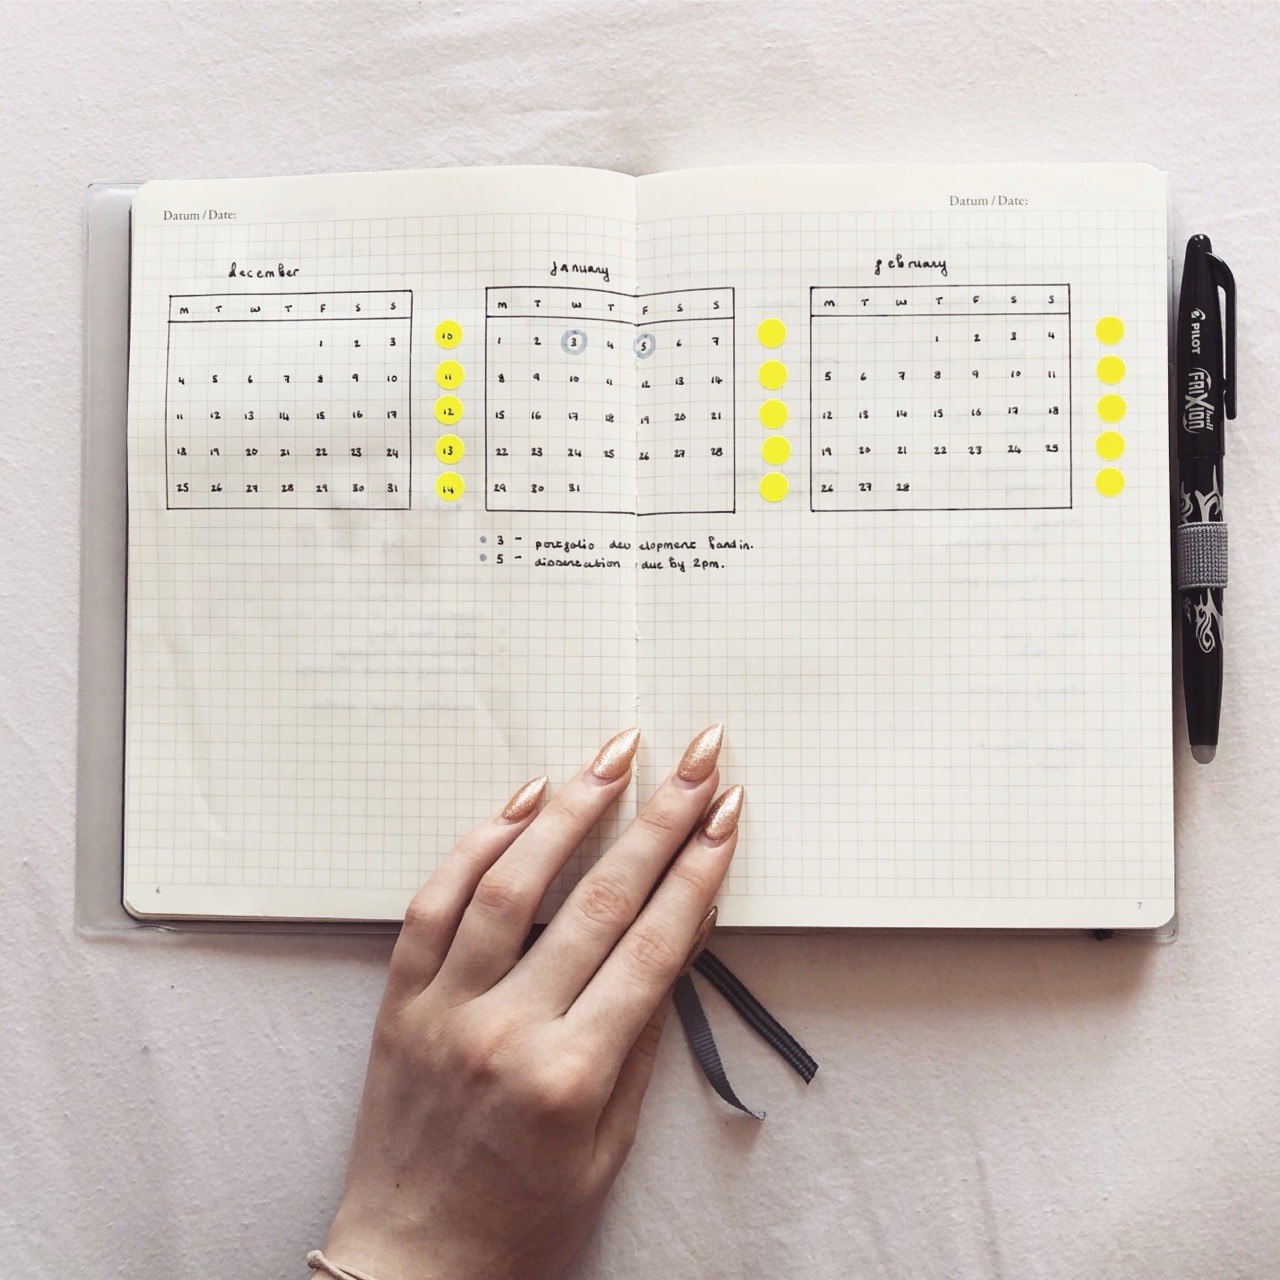 Datum / Date:
Datum / Date:
december
M T W T F S S
1 2 3
4 5 6 7 8 9 10
11 12 13 14 15 16 17
18 19 20 21 22 23 24
25 26 27 28 29 30 31
10
11
12
13
14
january
M T W T F S S
1 2 3 4 5 6 7
8 9 10 11 12 13 14
15 16 17 18 19 20 21
22 23 24 25 26 27 28
29 30 31
3 - portfolio development handin.
5 - dissertation due by 2pm.
february
M T W T F S S
1 2 3 4
5 6 7 8 9 10 11
12 13 14 15 16 17 18
19 20 21 22 23 24 25
26 27 28
6
7
PILOT
FRIXION ball